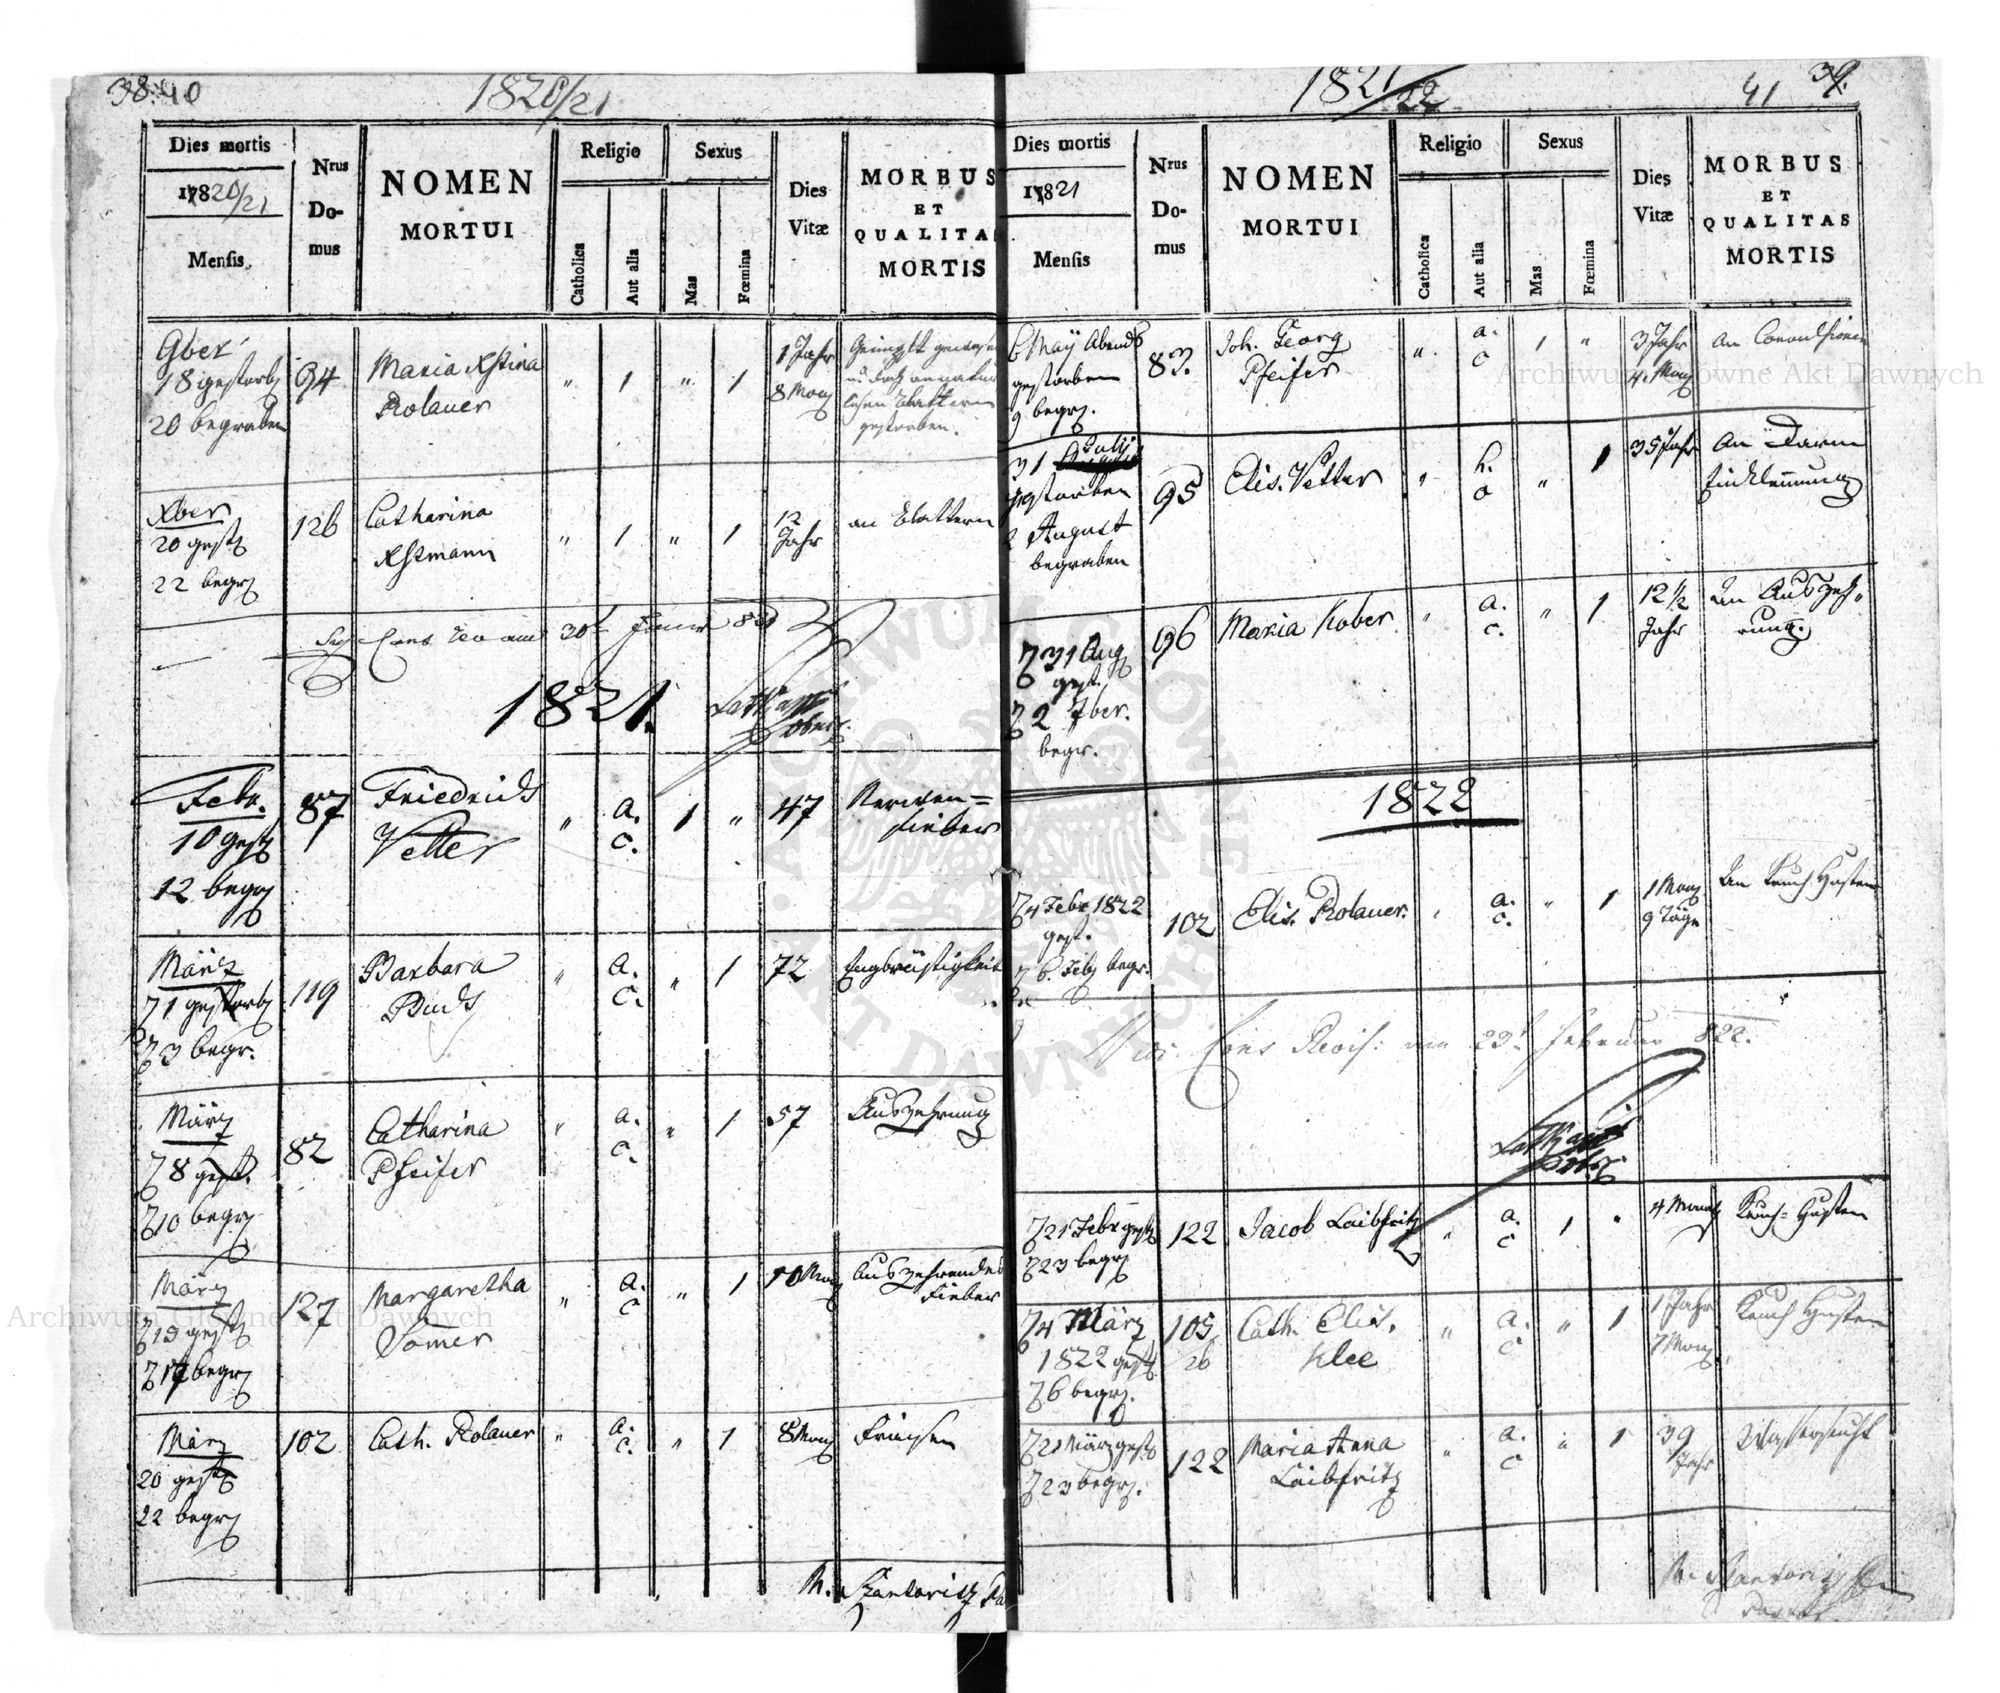 38. 40
1820/21
Dies mortis
17820/21
Mensis
Nrus Do-mus
NOMEN
MORTUI
Religio
Catholica
Aut alia
Sexus
Mas
Fœmina
Dies
Vitæ
MORBUS
ET
QUALITAS
MORTIS
9ber
18 gestorb
20 begraben
94
Maria Xstina
Rolauer
" 1 " 1
1 Jahr
8 Mon
gestorben.
Xber
20 gest
22 begr
126
Catharina
Xstmann
" 1 " 1
12
Jahr
an Blattern
1821.
Febr.
10 gest
12 begr
87
Friedrich
Vetter
" a. c. 1 "
47
Nerven=
fieber
März
1 gestorb
3 begr.
119
Barbara
Buch
" a. c. " 1
72
Engbrüstigkeit
März
8 gest.
10 begr
82
Catharina
Pfeifer
" a. c. " 1
57
Auszehrung
März
15 gest
17 begr
127
Margaretha
Somer
" a. c " 1
10 Mon
Auszehrendes
Fieber
März
20 gest
22 begr
102
Cath. Rolauer
" a. c. " 1
8 Mon
Fraisen
1821/22
41 39.
Dies mortis
17821
Mensis
Nrus Do-mus
NOMEN
MORTUI
Religio
Catholica
Aut alia
Sexus
Mas
Fœmina
Dies
Vitæ
MORBUS
ET
QUALITAS
MORTIS
6 May Abends
gestorben
9 begr.
83.
Joh. Georg
Pfeifer
" a. c 1 "
3 Jahr
4. Mon
31 July
gestorben
2 August
begraben
95
Elis. Vetter
" "
1
35 Jahr
An Darm
Einklemmung
31 Aug
gest.
2 7ber.
begr.
96
Maria Kober
" a. c. " 1
12 1/2
Jahr
An Auszeh
rung.
1822
4 Febr 1822
gest.
6. Feb begr.
102
Elis. Rolauer.
" a. c. " 1
1 Mon
9 Täge
An Keuch Husten
21 Febr gest
23 begr
122
Jacob Laibfritz
" a. c 1 "
4 Monath
Keuch=Husten
4 März
1822 gest
6 begr.
105
/26
Cath. Elis.
Klee
" a. c " 1
1 Jahr
7 Mon
Keuch Husten
21 März gest
23 begr.
122
Maria Anna
Laibfritz
" a. c " 1
39
Jahr
Wassersucht
Archiwum Główne Akt Dawnych
Archiwum Główne Akt Dawnych